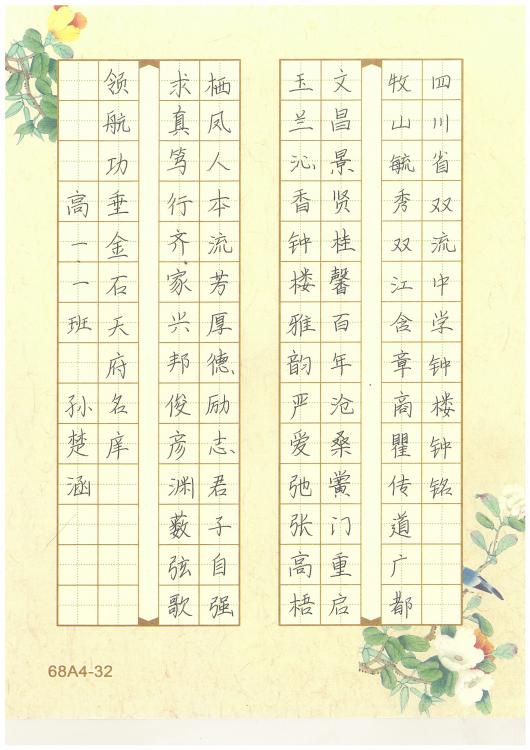 四川省双流中学钟楼钟铭
牧山毓秀双江含章商瞿传道广都
文昌景贤桂馨百年沧桑黉门重启
玉兰沁香钟楼雅韵严爱弛张高梧
栖凤人本流芳厚德励志君子自强
求真笃行齐家兴邦俊彦渊薮弦歌
领航功垂金石天府名庠
高一一班 孙楚涵
68A4-32